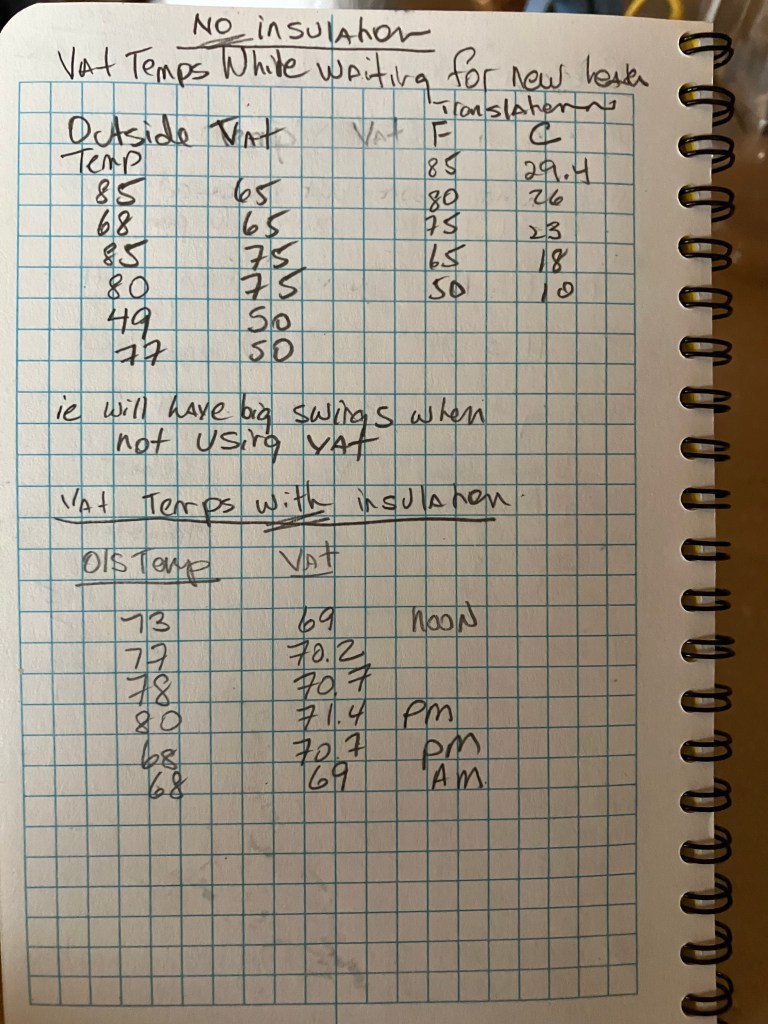 NO insulation
VAt Temps While waiting for new heater
Translation
Outside VAt VAt F C
Temp 85 29.4
85 65 80 26
68 65 75 23
85 75 65 18
80 75 50 10
49 50
77 50
ie will have big swings when
not using VAt
VAt Temps with insulation.
O/S Temp VAt
73 69 NOON
77 70.2
78 70.7
80 71.4 PM
68 70.7 PM
68 69 AM.